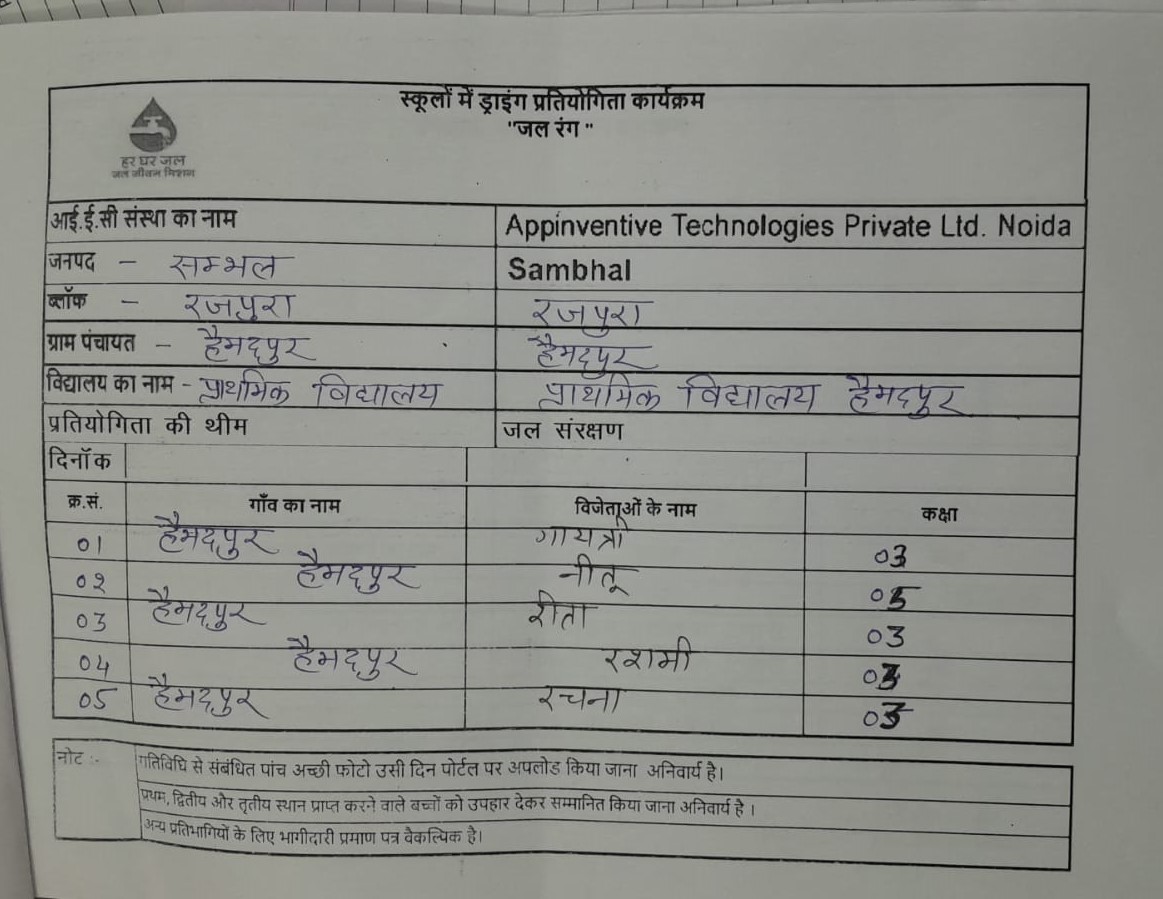 स्कूलों में ड्राइंग प्रतियोगिता कार्यक्रम
"जल रंग "
हर घर जल
जल जीवन मिशन
आई.ई.सी संस्था का नाम Appinventive Technologies Private Ltd. Noida
जनपद - सम्भल Sambhal
ब्लॉक - रजपुरा रजपुरा
ग्राम पंचायत - हैमदपुर हैमदपुर
विद्यालय का नाम - प्राथमिक विद्यालय प्राथमिक विद्यालय हैमदपुर
प्रतियोगिता की थीम जल संरक्षण
दिनॉक
क्र.सं. गाँव का नाम विजेताओं के नाम कक्षा
01 हैमदपुर गायत्री 03
02 हैमदपुर नीतू 05
03 हैमदपुर रीता 03
04 हैमदपुर रशमी 03
05 हैमदपुर रचना 05
नोट :- गतिविधि से संबंधित पांच अच्छी फोटो उसी दिन पोर्टल पर अपलोड किया जाना अनिवार्य है।
प्रथम, द्वितीय और तृतीय स्थान प्राप्त करने वाले बच्चों को उपहार देकर सम्मानित किया जाना अनिवार्य है ।
अन्य प्रतिभागियों के लिए भागीदारी प्रमाण पत्र वैकल्पिक है।